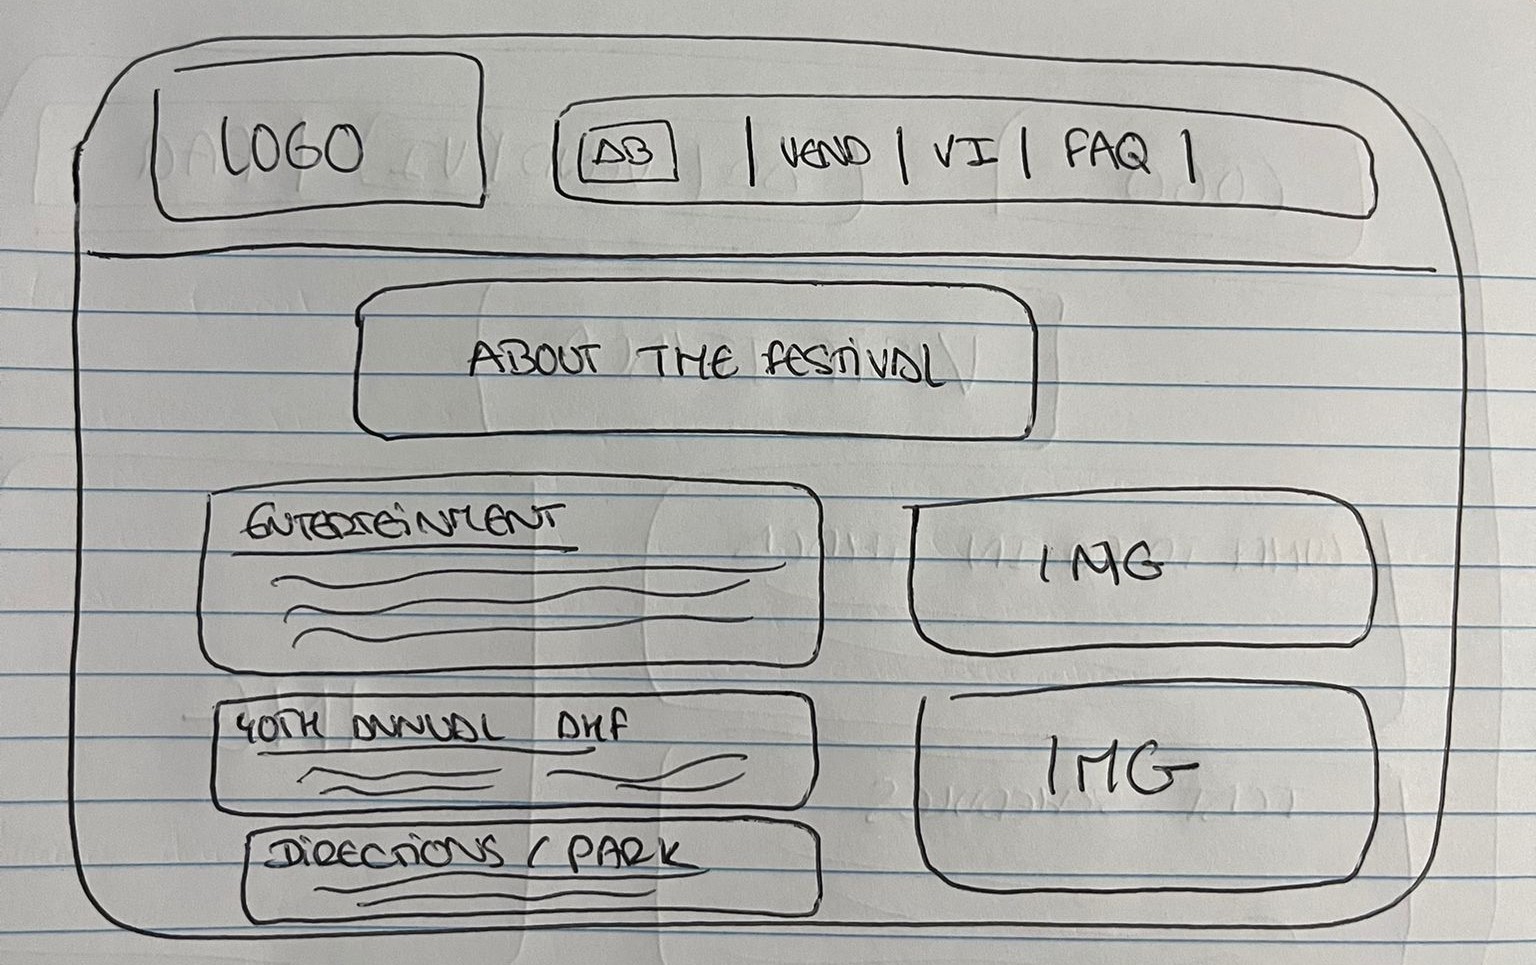 LOGO
AB | VEND | VI | FAQ |
ABOUT THE FESTIVAL
ENTERTEINMENT
IMG
40TH ANNUAL DHF
IMG
DIRECTIONS / PARK